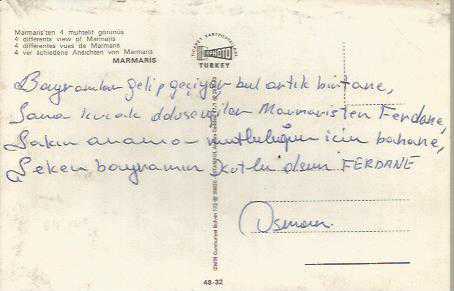 Marmaris'ten 4 muhtelif görünüş
4 different view of Marmaris
4 differentes vues de Marmaris
4 ver schiedene Ansichten von Marmaris
MARMARIS
TURKEY
Bayramlar gelip geçiyor bul artık birtane,
Sana kucak dolusu Marmaristen Ferdane,
Sakın arama mutluluğun için bahane,
Şeker bayramın kutlu olsun FERDANE
Osman
48-32